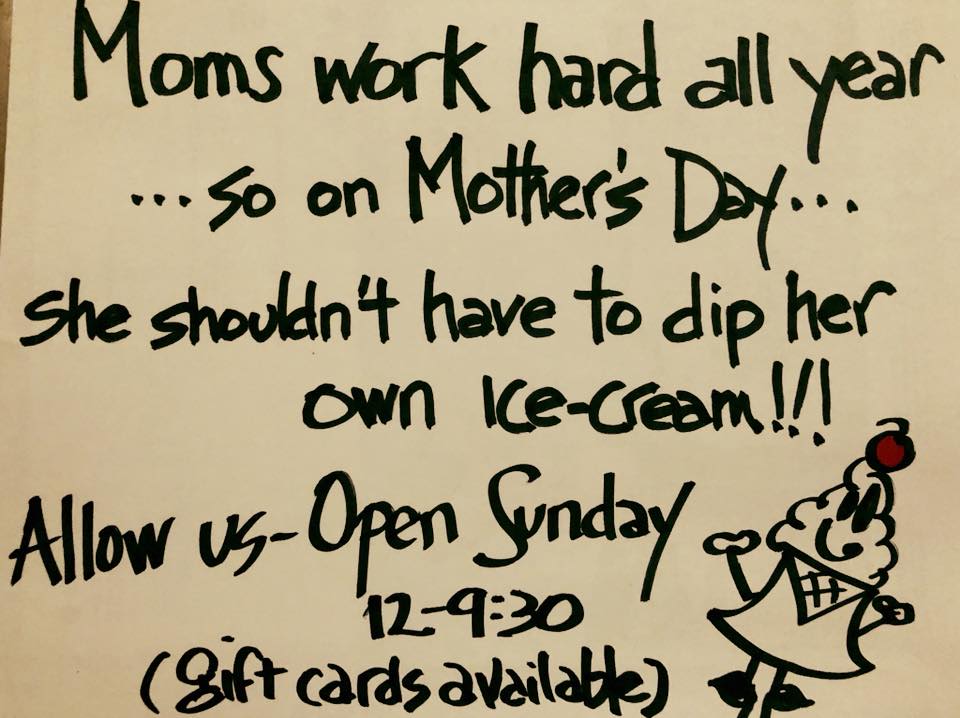 Moms work hard all year
...so on Mother's Day...
she shouldn't have to dip her
own Ice-cream!!!
Allow us-Open Sunday
12-9:30
(gift cards available)